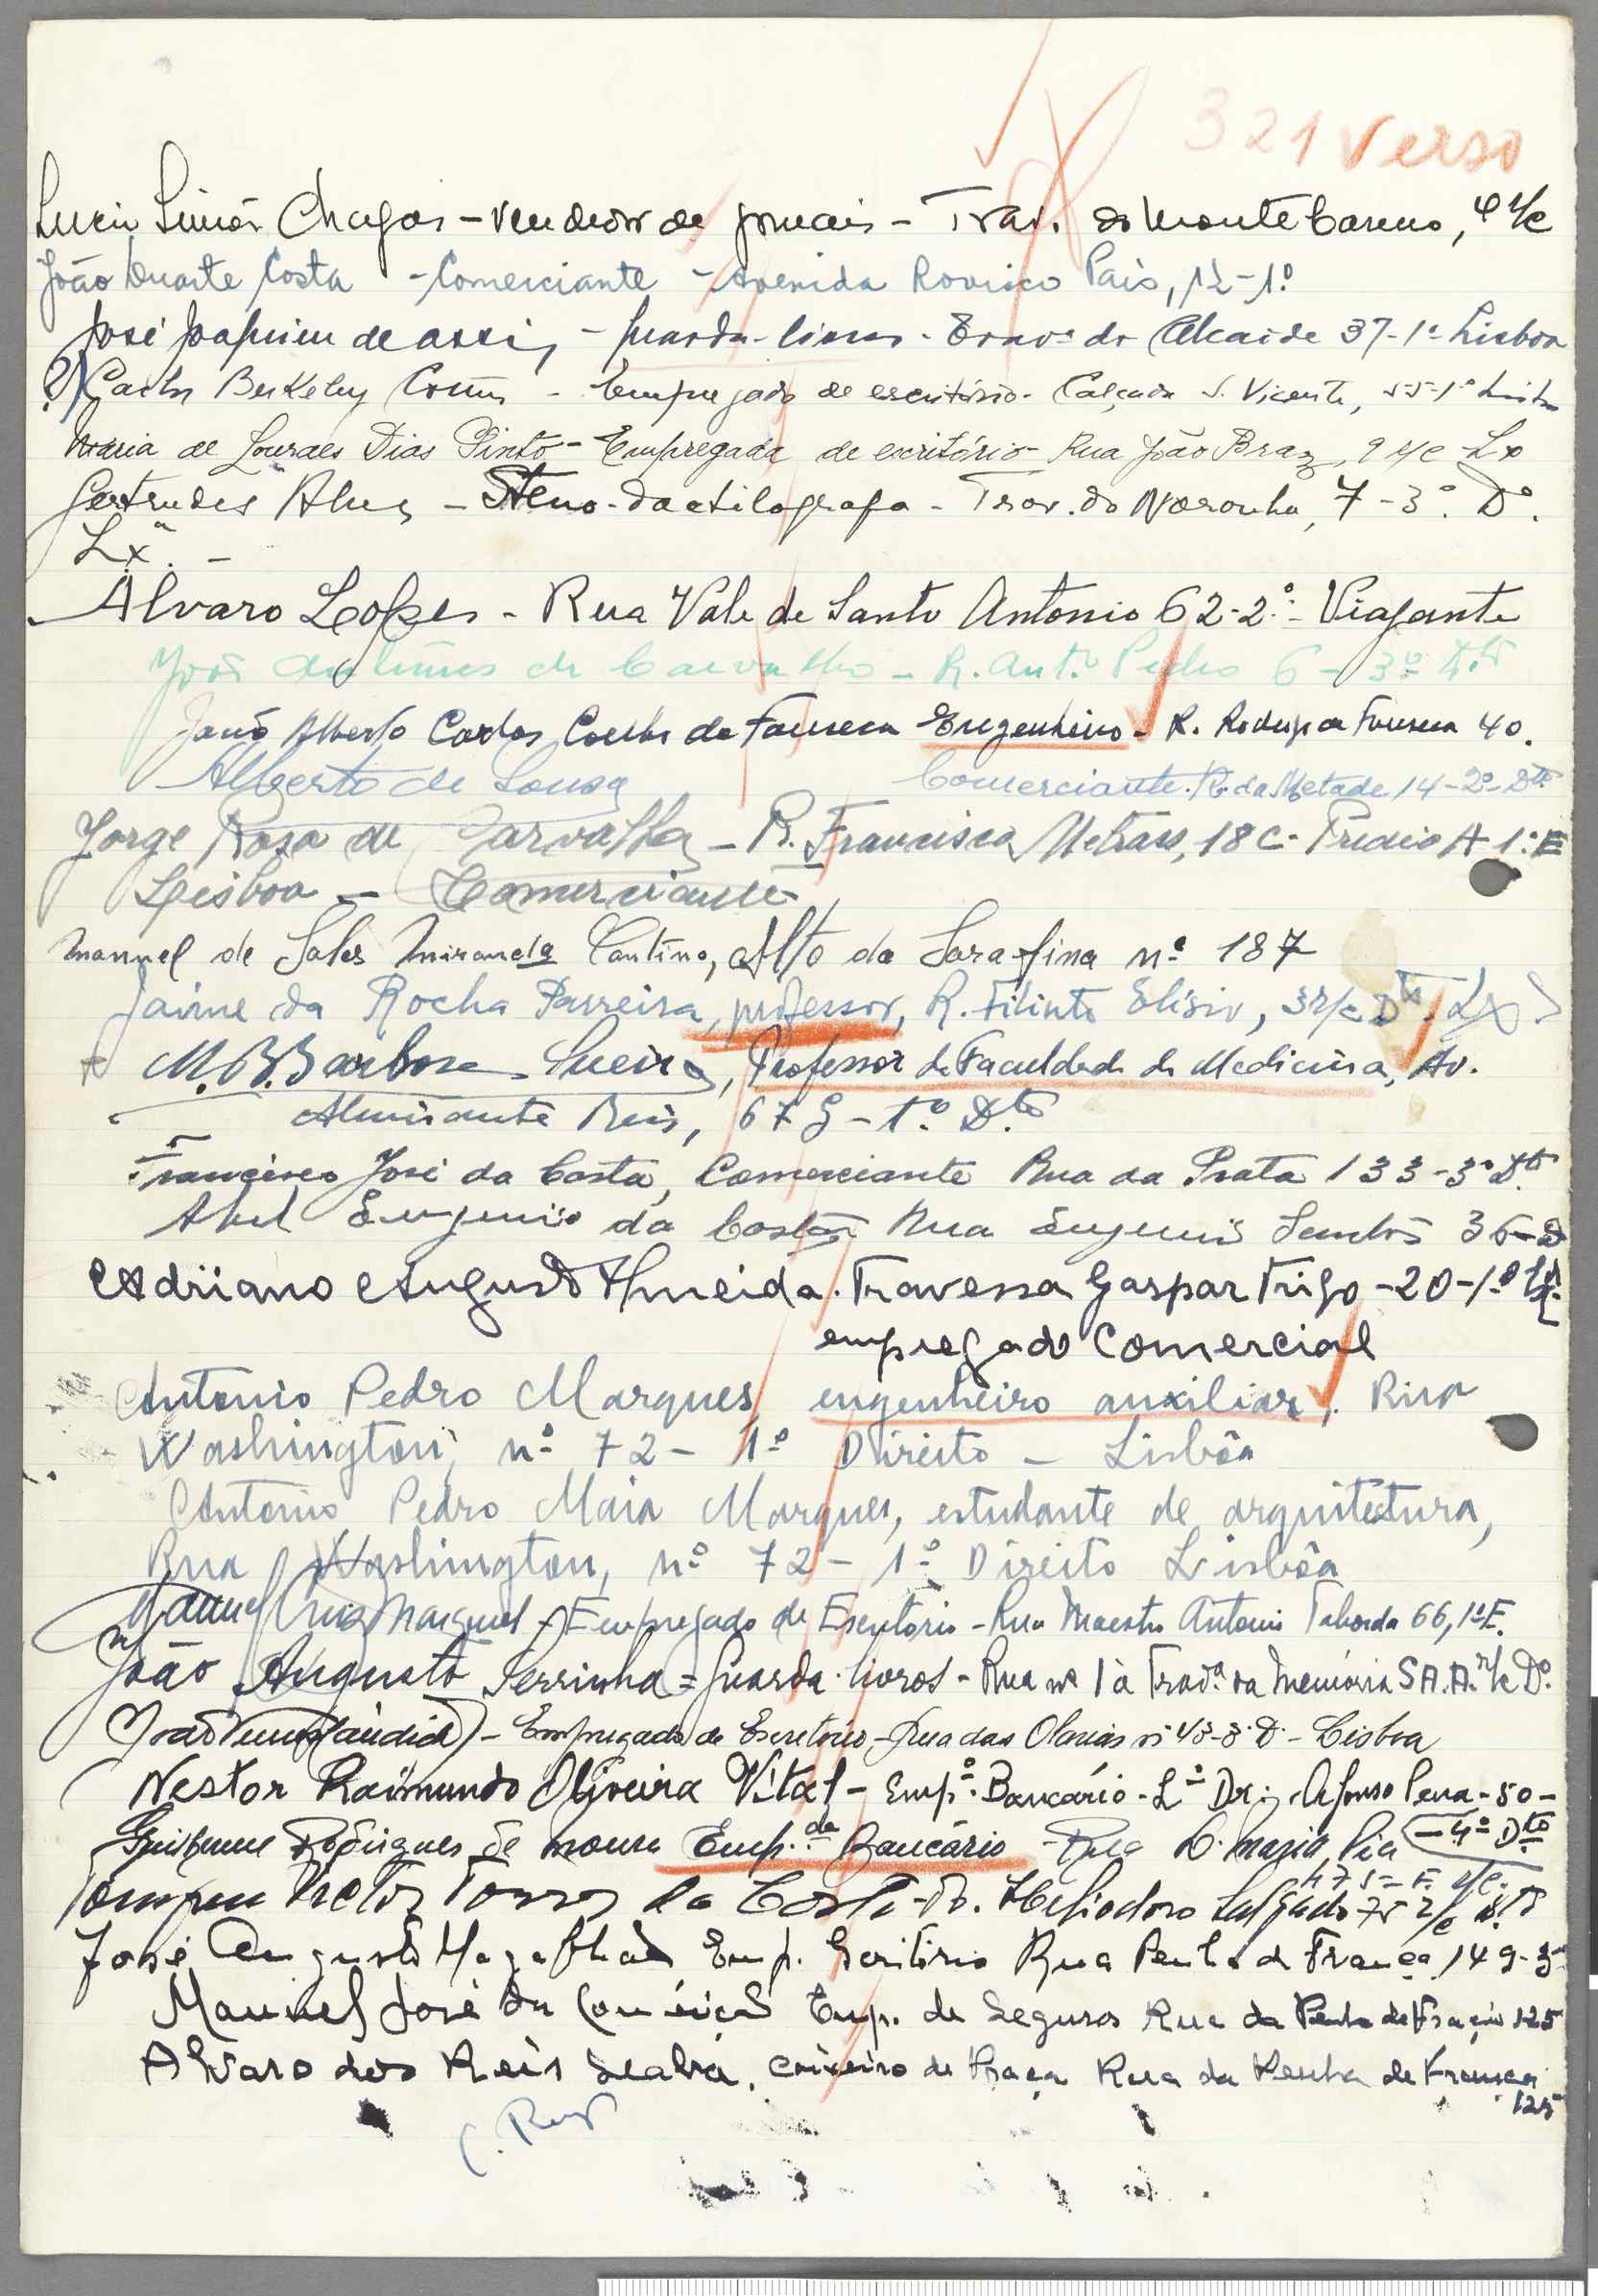 321 verso
Simões Chagas - vendedor de jornais - Trav. do Monte Carmo, 4 r/c
João Duarte Costa - Comerciante - Avenida Rovisco Pais, 12-1º
José Joaquim de Assis - guarda-livros - Travª do Alcaide 37-1º Lisboa
?) Carlos Berkeley - Empregado de escritório - Calçada S. Vicente, 55-1º Lisboa
Maria de Lourdes Dias Pinto - Empregada de escritório - Rua João Braz, 9 r/c Lx
Gertrudes Alves - Steno-dactilografa - Trav. do Noronha, 7-3º. Dº.
Lxª. -
Alvaro Lopes - Rua Vale de Santo Antonio 62-2º - Viajante
João Antunes de Carvalho - R. Antº Pedro 6-3º Dtº
João Alberto Carlos Coelho da Fonseca Engenheiro - R. Rodrigo da Fonseca 40.
Alberto de Sousa Comerciante. R. da Metade 14-2º-Dtº
Jorge Rosa de Carvalho - R. Francisco Metrass, 18C - Predio A 1º E
Lisboa - Comerciante
Manuel de Sales Miranda Cantino, Alto da Sarafina nº 187
Jaime da Rocha Parreira, professor, R. Filinto Elísio, 3 r/c Dtº. Lx
M. B. Barbosa Sueiro, Professor da Faculdade de Medicina, Av.
Almirante Reis, 67 - 1º. Dtº
Francisco José da Costa, Comerciante Rua da Prata 133-3º Dtº.
Abel Eugenio da Costa Rua Eugenio Santos 36-2
Adriano Augusto Almeida. Travessa Gaspar Trigo - 20-1º
empregado Comercial
Antonio Pedro Marques, engenheiro auxiliar, Rua
Washington, nº 72 - 1º Direito - Lisbôa
Antonio Pedro Maia Marques, estudante de arquitectura,
Rua Washington, nº 72 - 1º Direito Lisbôa
Manuel - Empregado de Escritório - Rua Maestro Antonio Taborda 66, 1º E.
João Augusto Serrinha = guarda-livros - Rua nº 1 à Travª da Memória S A.A. r/c Dº.
João Candido - Empregado de Escritório - Rua das Olarias nº 43-3º D - Lisboa
Nestor Raimundo Oliveira Vital - Empº. Bancário - Lº Dr. Afonso Pena - 50 -
- 4º Dtº
Guilherme Rodrigues de Moura Emp. de Bancário - Rua D. Maria Pia
Pompeu Victor Torres da Costa - R. Heliodoro Salgado 75 r/c Dtº
José Augusto Magalhães Emp. Escritório Rua Penha de França 149-3º
Manuel José da Conceição Emp. de Seguros Rua da Penha de França 125
Alvaro dos Reis Seabra, caixeiro de Praça Rua da Penha de França
125